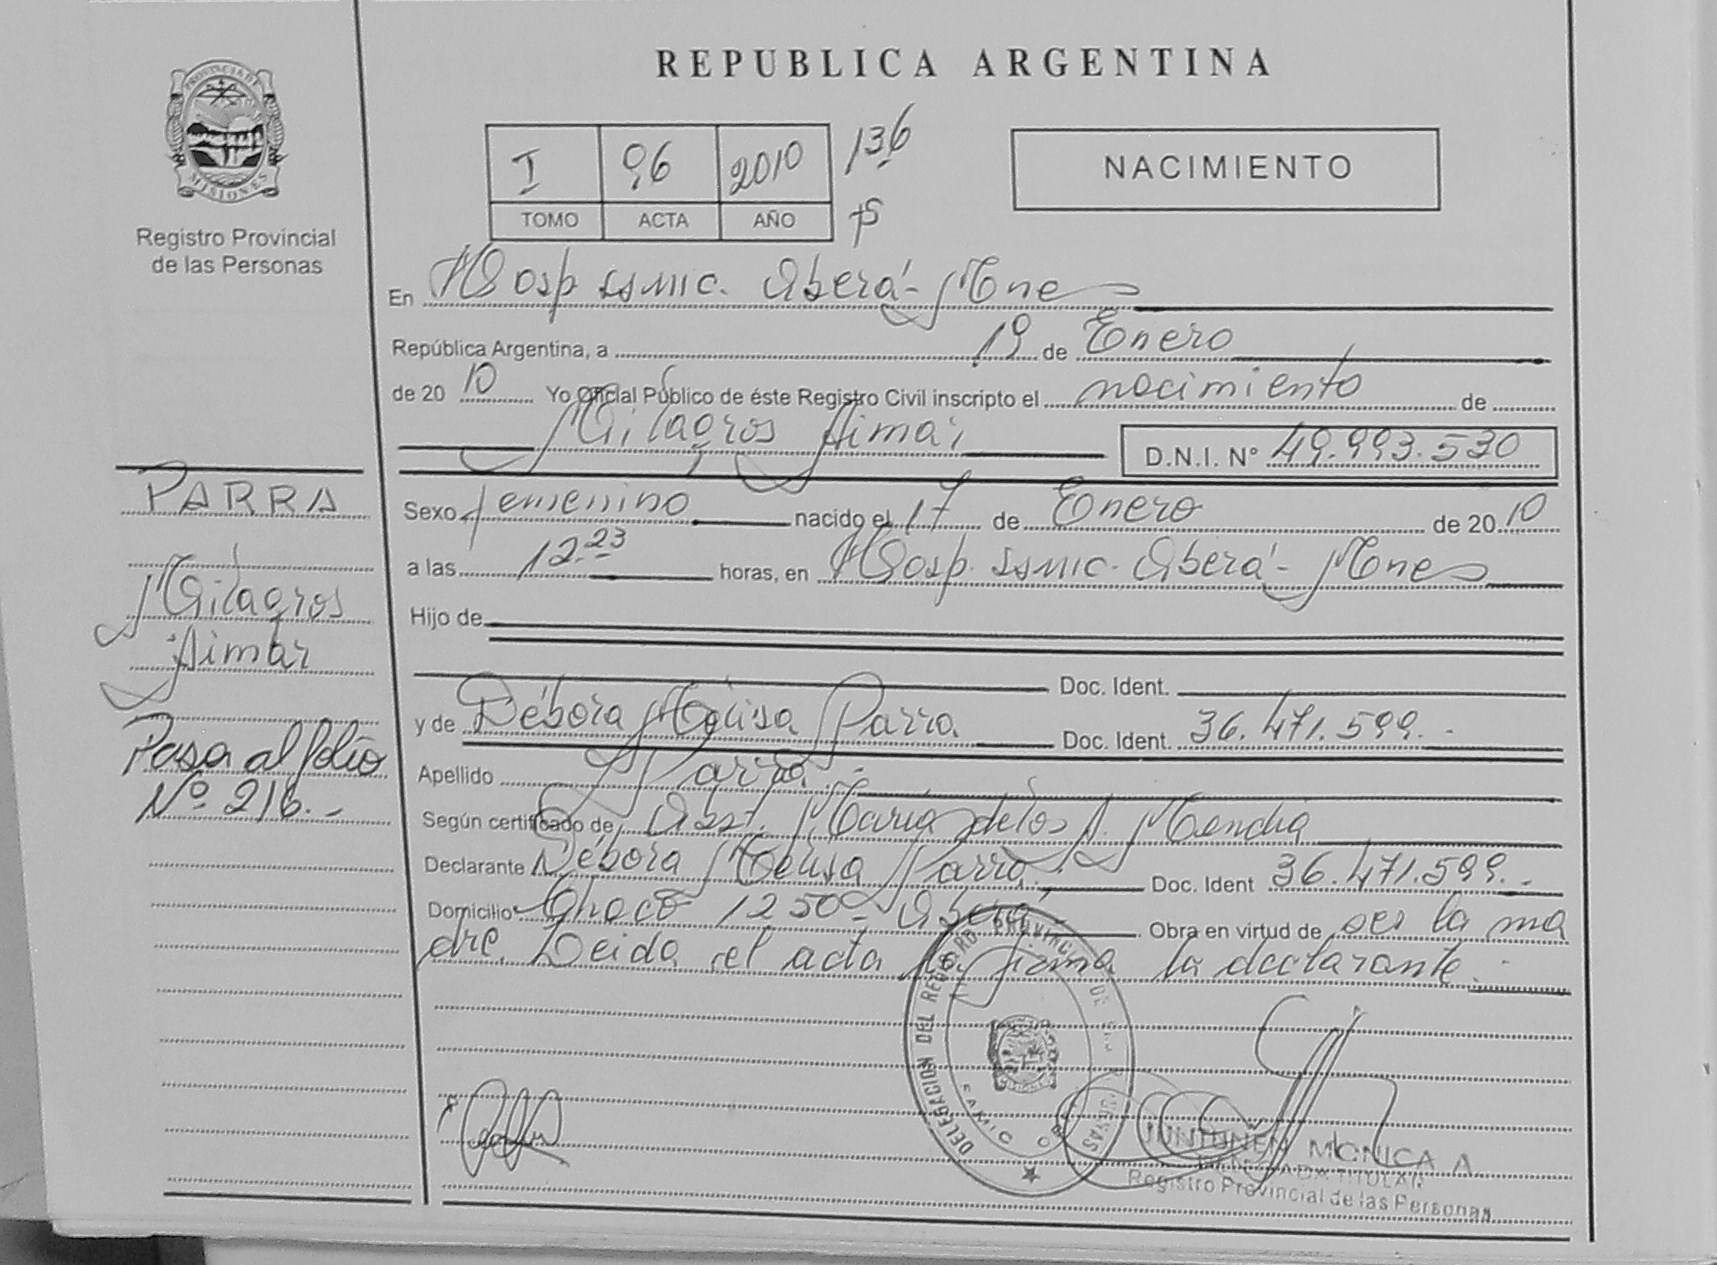 REPUBLICA ARGENTINA
PROVINCIA DE
MISIONES
Registro Provincial
de las Personas
I 96 2010 136
TOMO ACTA AÑO
NACIMIENTO
En Hosp. Oberá - Mnes
República Argentina, a 19 de Enero
de 20 10 Yo Oficial Público de éste Registro Civil inscripto el nacimiento de
Milagros Aimar
D.N.I. N° 49.993.530
PARRA
Milagros
Aimar
Pasa al folio
Nº 216.-
Sexo femenino nacido el 17 de Enero de 20 10
a las 12.23 horas, en Hosp. Oberá - Mnes
Hijo de
Doc. Ident.
y de Débora Melisa Parra Doc. Ident. 36.471.599.-
Apellido Parra.-
Según certificado de Obst. María de los A. Mendia
Declarante Débora Melisa Parra Doc. Ident 36.471.599.-
Domicilio Chaco 1250 - Oberá Obra en virtud de ser la ma
dre. Leida el acta la firma la declarante.-
DELEGACION DEL REGISTRO PROVINCIAL DE LAS PERSONAS
JUNTUNEN MONICA A
Registro Provincial de las Personas